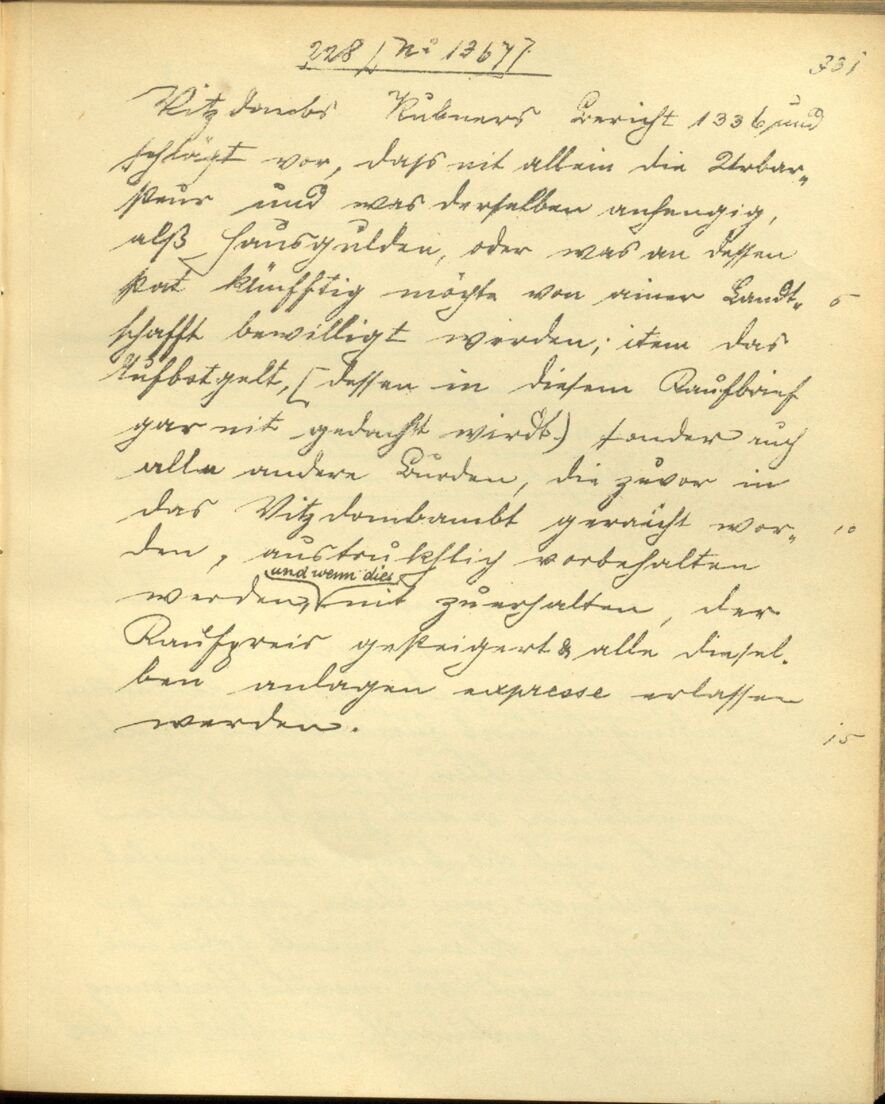 228 [No 13677.
331
Vitzdombs Rubners Bericht 1336 und
schlägt vor, dass nit allein die Urbar-
steur und was derselben anhengig,
alß hausgulden, oder was an dessen
stat künfftig möchte von ainer Landt- 5
schafft bewilligt werden; item das
Aufbotgelt, [dessen in diesem Kaufbrief
gar nit gedacht wirdt.) sonder auch
alle andere Burden, die zuvor in
das Vitzdombambt geraicht wor- 10
den, austrukhlich vorbehalten
und wenn dies
werden, nit zuerhalten, der
Kaufpreis gesteigert & alle diesel-
ben anlagen expresse erlassen
werden. 15